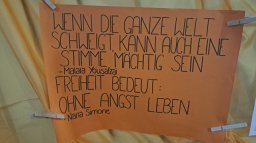 WENN DIE GANZE WELT
SCHWEIGT, KANN AUCH EINE
STIMME MÄCHTIG SEIN
- Malala Yousafzai
FREIHEIT BEDEUT:
OHNE ANGST LEBEN
- Naria Simone